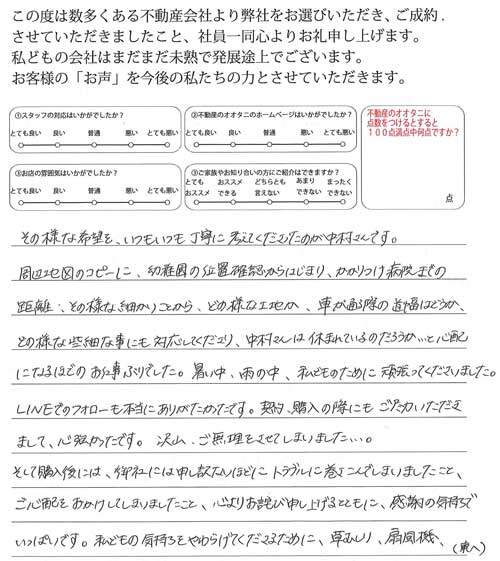 この度は数多くある不動産会社より弊社をお選びいただき、ご成約.
させていただきましたこと、社員一同心よりお礼申し上げます。
私どもの会社はまだまだ未熟で発展途上でございます。
お客様の「お声」を今後の私たちの力とさせていただきます。
①スタッフの対応はいかがでしたか？
とても良い 良い 普通 悪い とても悪い
②不動産のオオタニのホームページはいかがでしたか？
とても良い 良い 普通 悪い とても悪い
③お店の雰囲気はいかがでしたか？
とても良い 良い 普通 悪い とても悪い
③ご家族やお知り合いの方にご紹介はできますか？
とても おススメ どちらとも あまり まったく
おススメ できる 言えない できない できない
不動産のオオタニに
点数をつけるとすると
１００点満点中何点ですか？
点
その様な希望を、いつもいつも丁寧に考えてくださったのが中村さんです。
周辺地図のコピーに、幼稚園の位置確認からはじまり、かかりつけ病院までの
距離、その様な細かいことから、どの様な土地か、車が通る際の道幅はどうか、
どの様な些細な事にも対応してくださり、中村さんは休まれているのだろうか…と心配
になるほどのお仕事ぶりでした。暑い中、雨の中、私どものために頑張ってくださいました。
LINEでのフォローも本当にありがたかったです。契約、購入の際にもご尽力いただき
まして、心強かったです。沢山、ご無理をさせてしまいました…。
そして購入後には、御社には申し訳ないほどにトラブルに巻きこんでしまいましたこと、
ご心配をおかけしてしまいましたこと、心よりお詫び申し上げるとともに、感謝の気持ちで
いっぱいです。私どもの気持ちをやわらげてくださるために、草むしり、扇風機、
(裏へ)